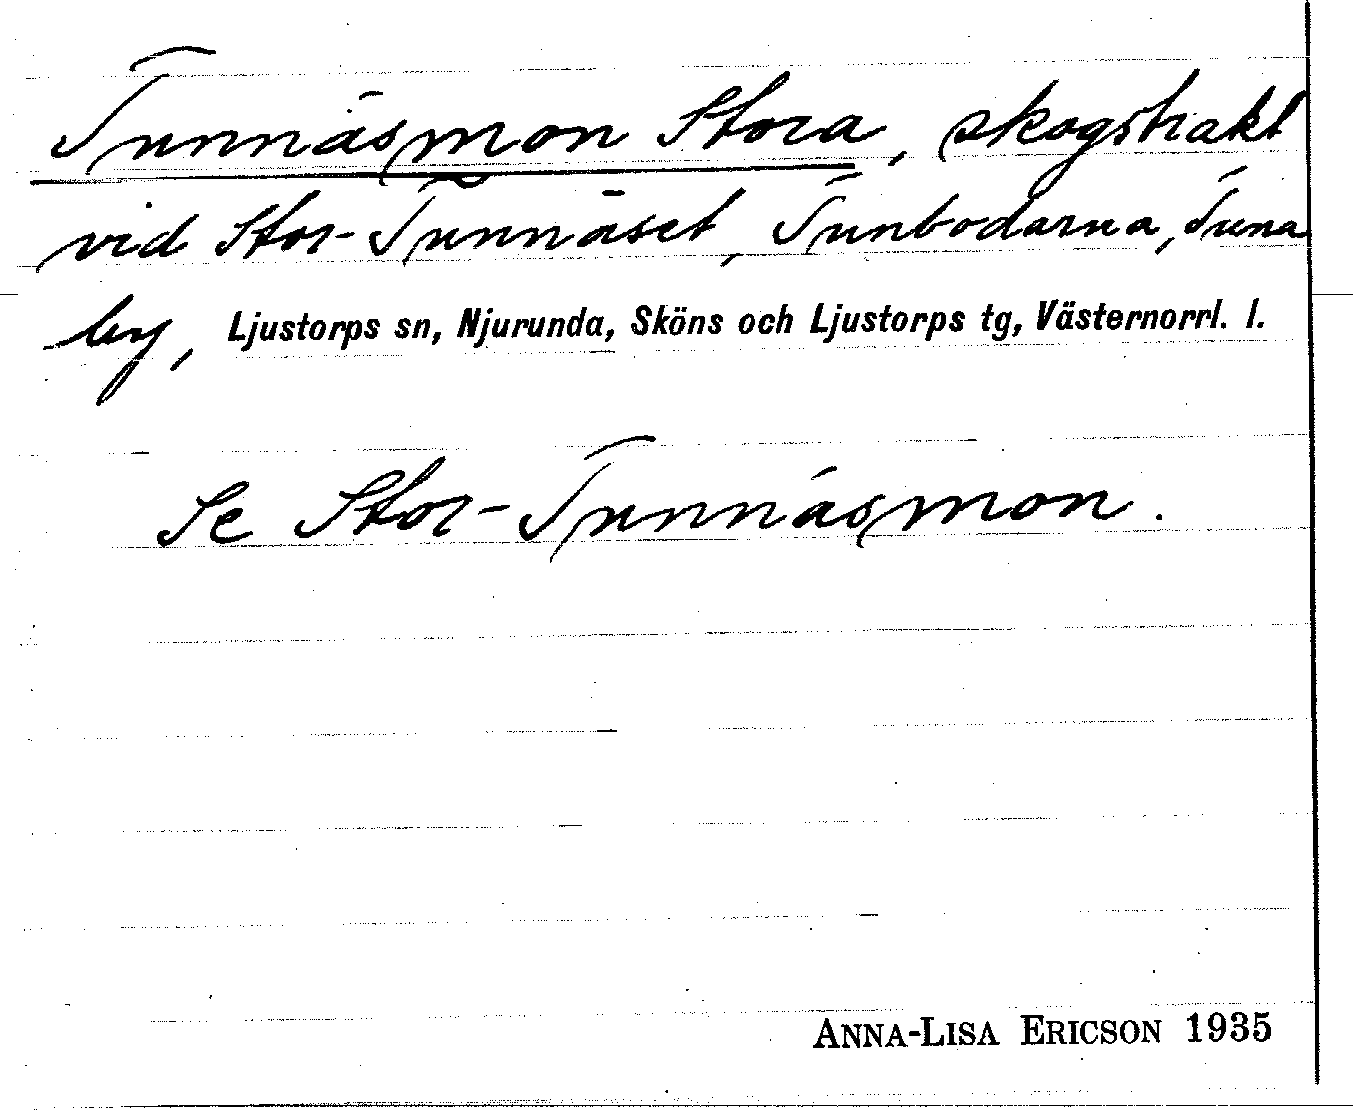 Tunnäsmon Stora, skogstrakt
vid Stor-Tunnäset, Tunbodarna, Tuna
by, Ljustorps sn, Njurunda, Sköns och Ljustorps tg, Västernorrl. l.
Se Stor-Tunnäsmon.
ANNA-LISA ERICSON 1935